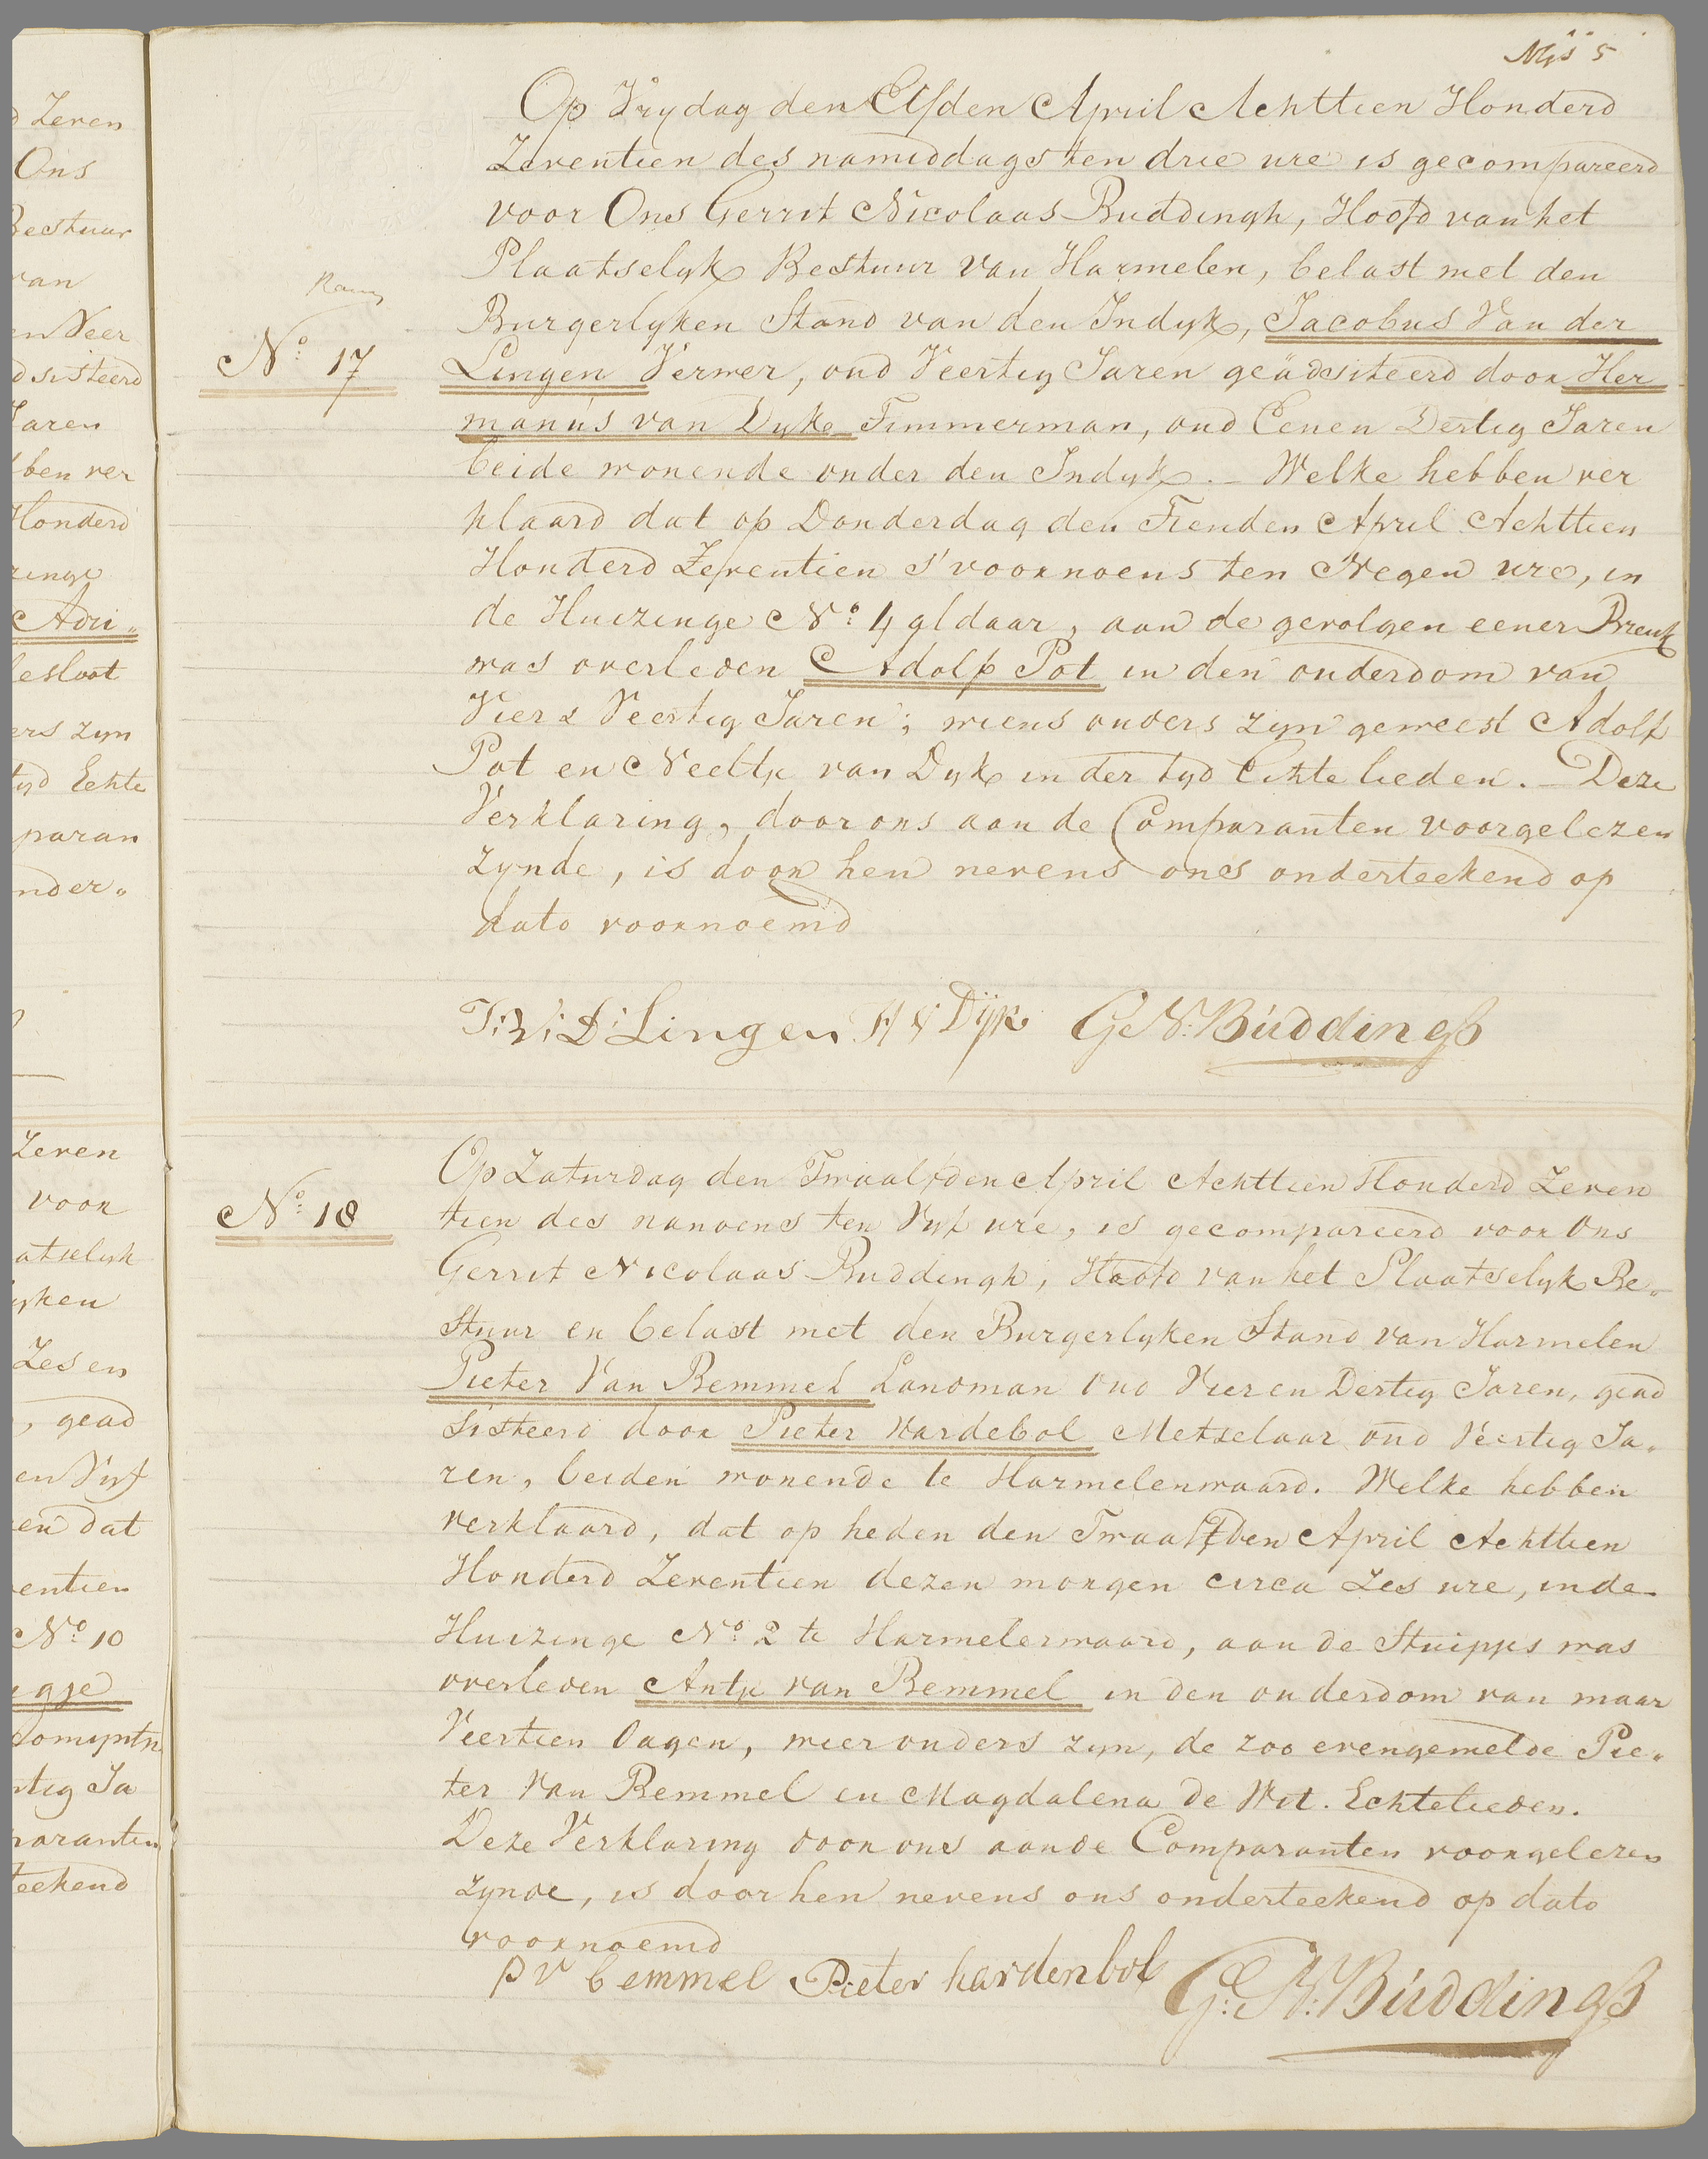 d Zeven
Ons
Bestuur
van
en Veer
dsisteerd
Jaren
bben ver
Honderd
zinge
Adri„
esloot
ers zyn
tyd Echte
paran
nder„
Zeven
voor
atselyk
yken
Zes en
, gead
en Vyf
en dat
entien
No. 10
gje
tig Ja
paranten
teekend
5
Op Vrydag den Elfden April Achttien Honderd
Zeventien des namiddags ten drie ure is gecompareerd
voor Ons Gerrit Nicolaas Buddingh, Hoofd van het
Plaatselyk Bestuur van Harmelen, belast met den
Burgerlyken Stand van den Indyk, Jacobus Van der
No. 17
Lingen Verwer, oud Veertig Jaren geädsiteerd door Her
manus van Dyke Timmerman, oud Eenen Dertig Jaren
beide wonende onder den Indyk. – Welke hebben ver
klaard dat op Donderdag den Tienden April Achttien
Honderd Zeventien s'voornoens ten Negen ure, in
de Huizinge No. 4 aldaar, aan de gevolgen eener Breuk
was overleden Adolf Pot in den ouderdom van
Vier & Veertig Jaren; wiens ouders zyn geweest Adolf
Pot en Neeltje van Dyk in der tyd Echtelieden. – Deze
Verklaring, door ons aan de Comparanten voorgelezen
zynde, is door hen nevens ons onderteekend op
dato voornoemd
J: V: D: Lingen H V Dijk G: N: Buddingh
No. 18
Op Zaturdag den Twaalfden April Achttien Honderd Zeven
tien des nanoens ten Vyf ure, is gecompareerd voor Ons
Gerrit Nicolaas Buddingh, Hoofd van het Plaatselyk Be„
stuur en belast met den Burgerlyken Stand van Harmelen
Pieter Van Bemmel Landman oud Vier en Dertig Jaren, gead
sisteerd door Pieter Hardebol Metselaar oud Veertig Ja„
ren, beiden wonende te Harmelenwaard. Welke hebben
verklaard, dat op heden den Twaalfden April Achttien
Honderd Zeventien dezen morgen circa Zes ure, in de
Huizinge No. 2 te Harmelerwaard, aan de Stuipjes was
overleden Antje van Bemmel in den ouderdom van maar
Veertien Dagen, wier ouders zyn, de zoo evengemelde Pie„
ter Van Bemmel en Magdalena de Wit. Echtelieden.
Deze Verklaring door ons aan de Comparanten voorgelezen
zynde, is door hen nevens ons onderteekend op dato
voornoemd
P V bemmel Pieter hardenbol G: N: Buddingh